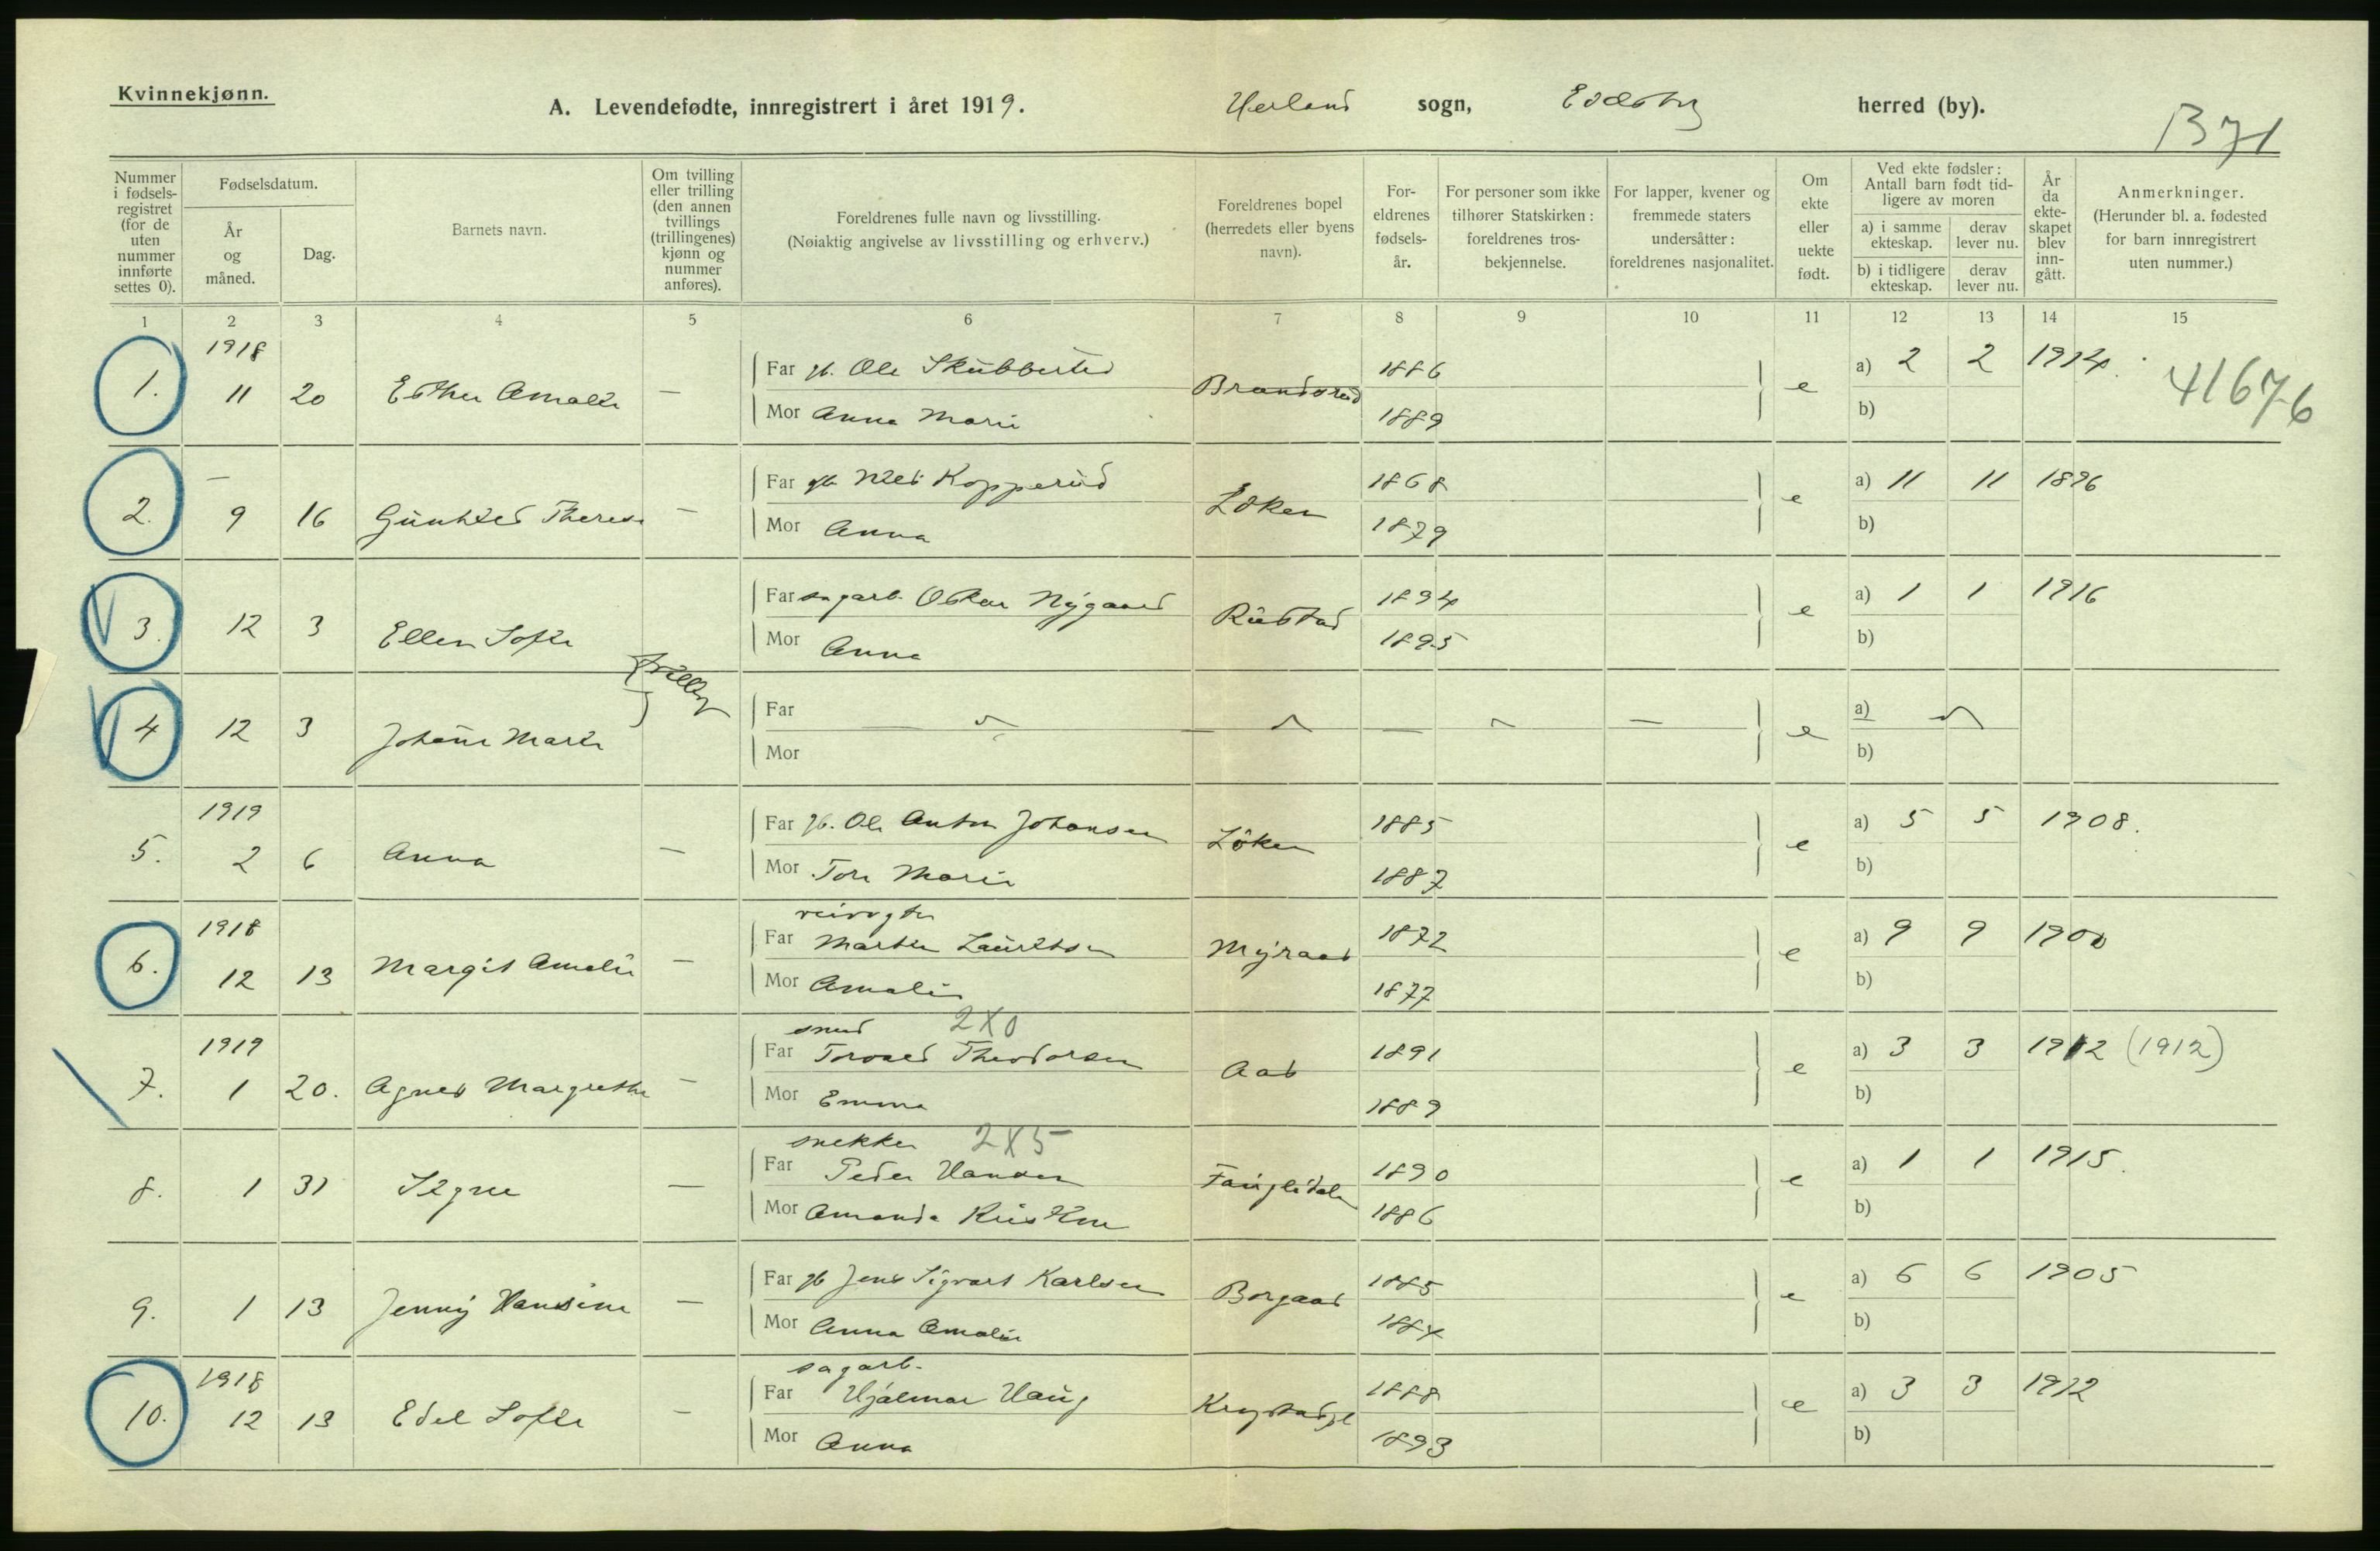 Kvinnekjønn.
A. Levendefødte, innregistrert i året 1919. Herland sogn, Eidsberg herred (by).
B 71
Nummer i fødselsregistret (for de uten nummer innførte settes 0).
Fødselsdatum.
År og måned.
Dag.
Barnets navn.
Om tvilling eller trilling (den annen tvillings (trillingenes) kjønn og nummer anføres).
Foreldrenes fulle navn og livsstilling.
(Nøiaktig angivelse av livsstilling og erhverv.)
Foreldrenes bopel (herredets eller byens navn).
Foreldrenes fødselsår.
For personer som ikke tilhører Statskirken: foreldrenes trosbekjennelse.
For lapper, kvener og fremmede staters undersåtter: foreldrenes nasjonalitet.
Om ekte eller uekte født.
Ved ekte fødsler: Antall barn født tidligere av moren
a) i samme ekteskap. derav lever nu.
b) i tidligere ekteskap. derav lever nu.
År da ekteskapet blev inngått.
Anmerkninger.
(Herunder bl. a. fødested for barn innregistrert uten nummer.)
1 2 3 4 5 6 7 8 9 10 11 12 13 14 15
1918
1. 11 20 Esther Amalie — Far gb. Ole Skubbestad Brandsrud 1886 e a) 2 2 1914. 41676
Mor Anna Marie 1889 b)
—
2. 9 16 Gunhild Therese — Far gb Nils Kopperud Löken 1868 e a) 11 11 1896
Mor Anna 1879 b)
3. 12 3 Ellen Sofie Far sagarb. Oskar Nygaard Rustad 1894 e a) 1 1 1916
Mor Anna 1895 b)
tvilling
4 12 3 Johanne Marie Far — — — e a)
Mor b)
1919
5. 2 6 Anna — Far gb. Ole Anton Johansen Löken 1885 e a) 5 5 1908.
Mor Tora Marie 1887 b)
1918 veivogter
6. 12 13 Margit Amalie — Far Martin Lauritsen Myraas 1872 e a) 9 9 1900
Mor Amalie 1877 b)
1919 smed 2X0
7. 1 20. Agnes Margrethe — Far Torvald Theodorsen Aas 1891 e a) 3 3 1912 (1912)
Mor Emma 1889 b)
snekker 2X5
8. 1 31 Signe — Far Peder Hansen 1890 e a) 1 1 1915.
Mor Amanda Kristine 1886 b)
9. 1 13 Jenny Hansine — Far gb Jens Sigvart Karlsen Borgaas 1885 e a) 6 6 1905
Mor Anna Amalie 1884 b)
1918 sagarb.
10. 12 13 Edel Sofie — Far Hjalmar Haug 1888 e a) 3 3 1912
Mor Anna 1893 b)